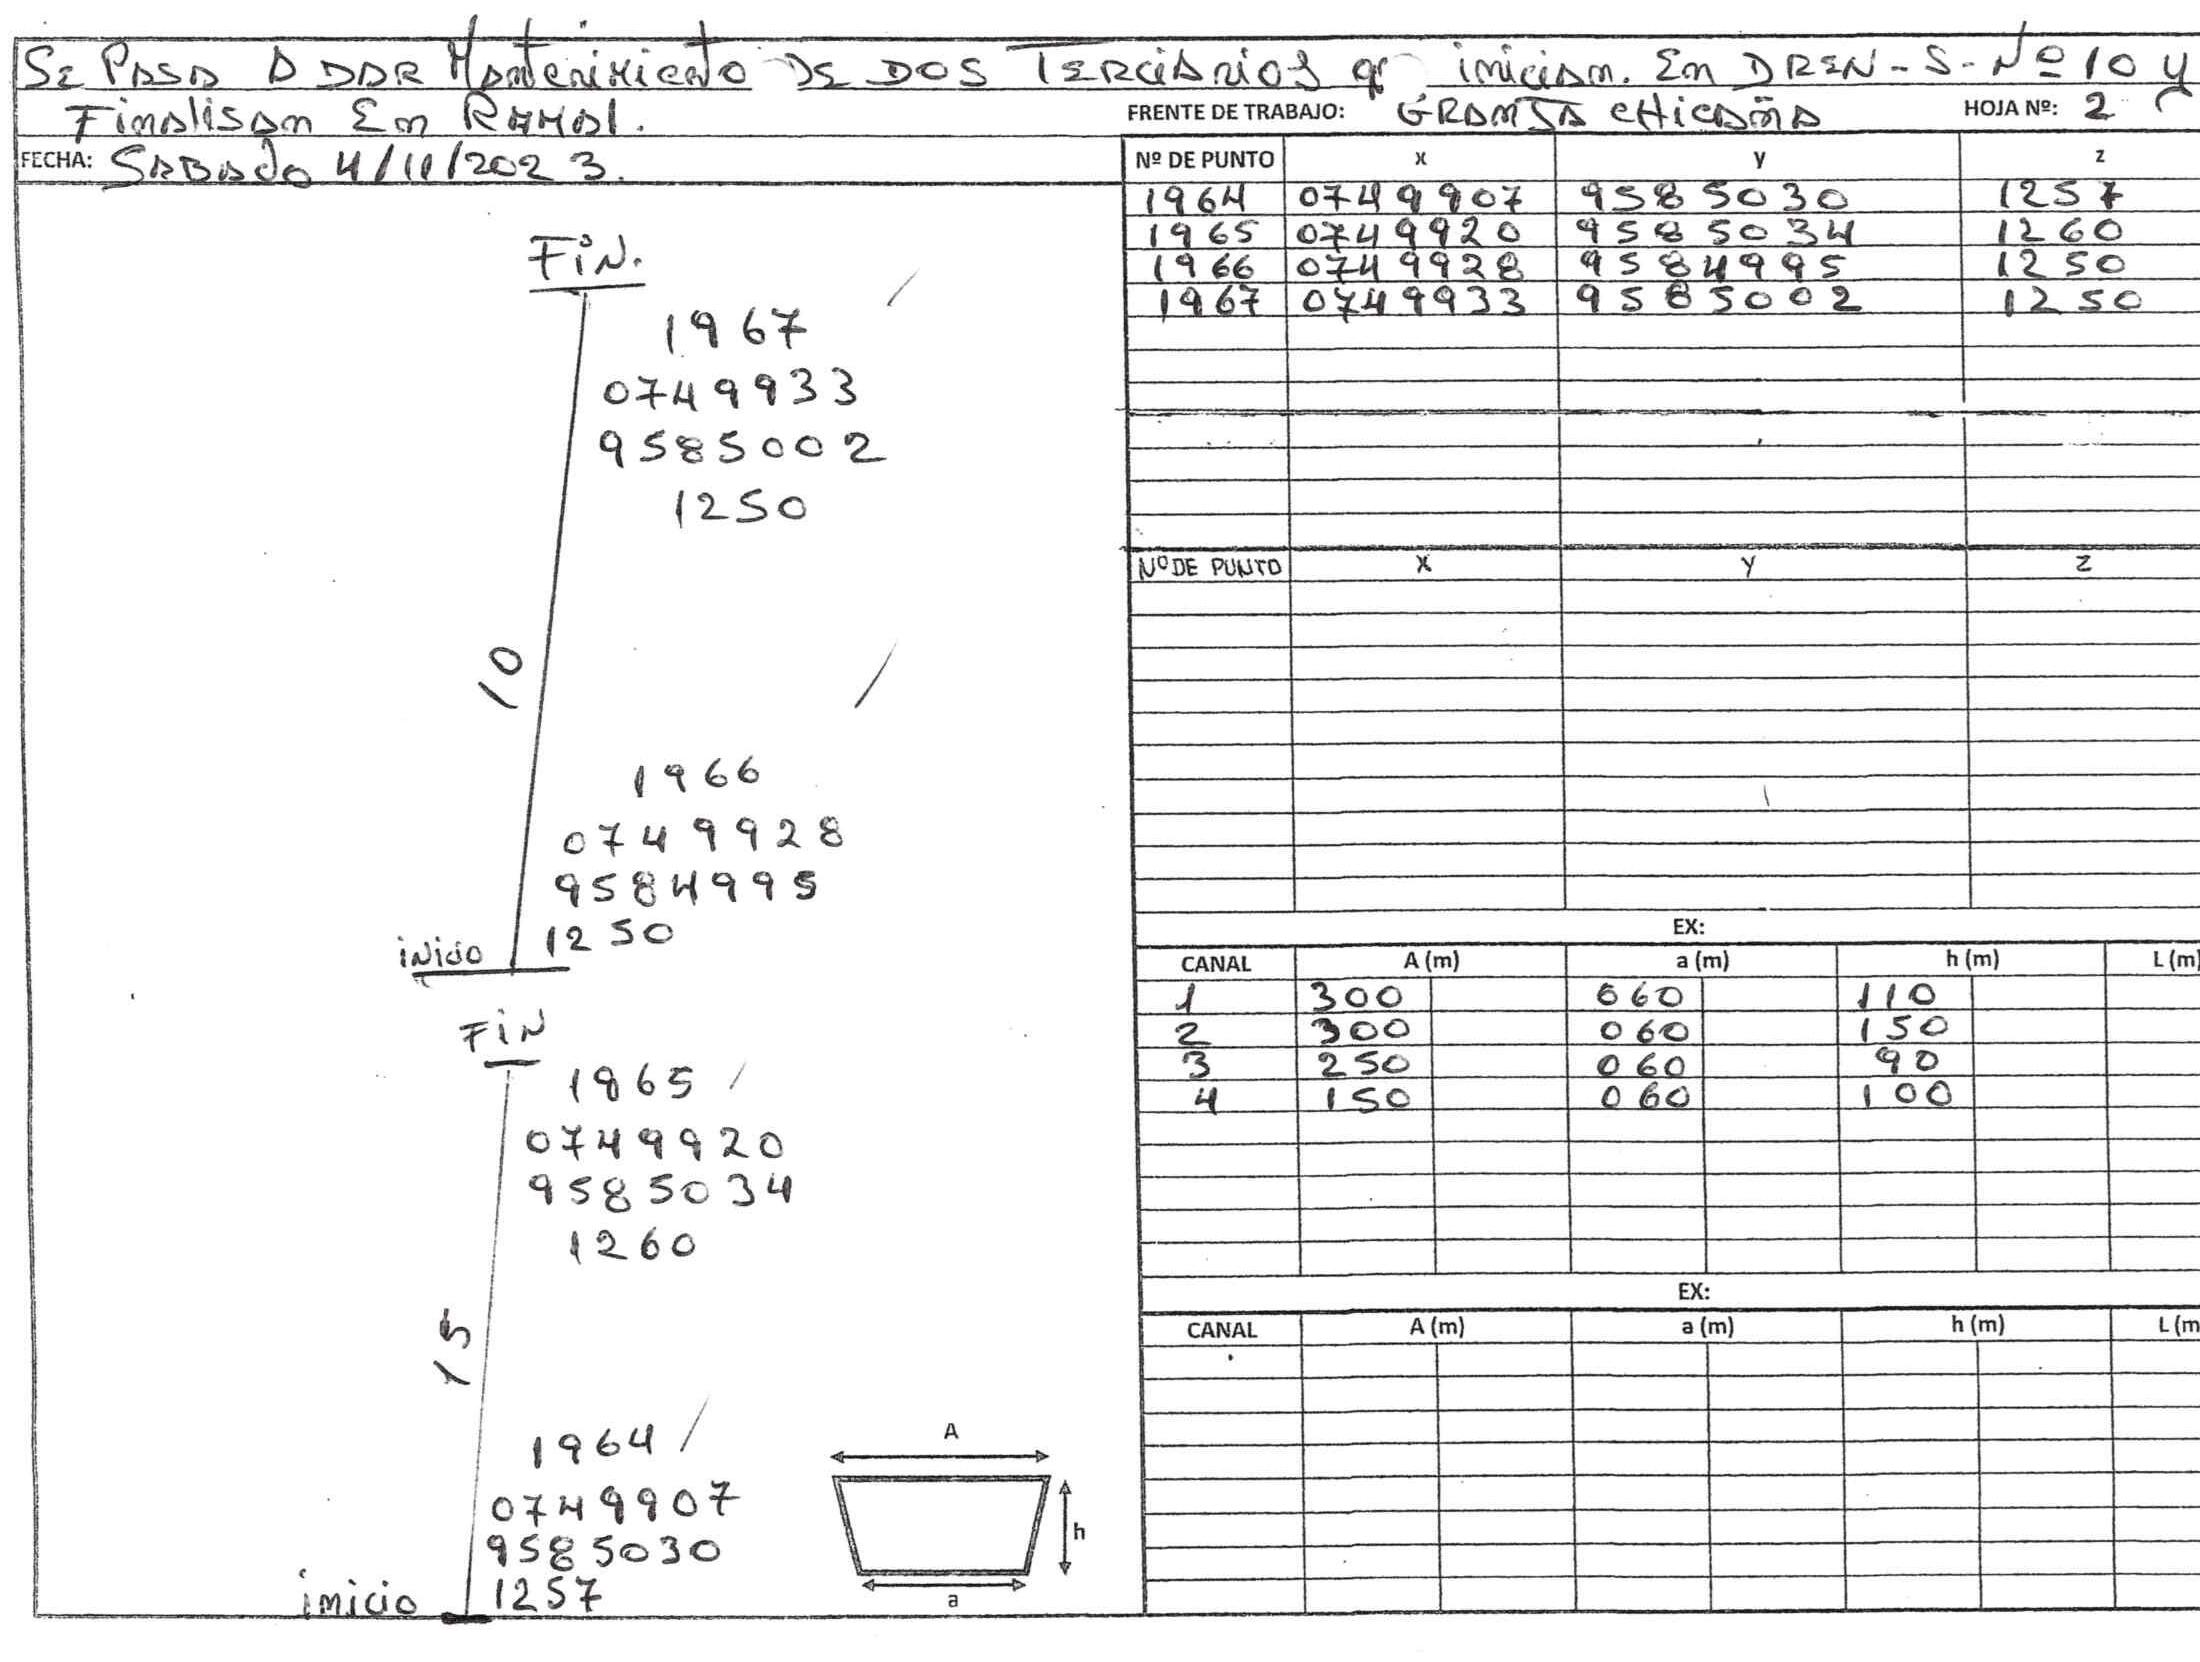 SE PASA A DAR Mantenimiento DE DOS TERCIARIOS q' inician. En DREN-S-Nº 10 y
Finalisan En RAMAL.
FRENTE DE TRABAJO: GRANJA CHICAÑA
HOJA Nº: 2
FECHA: SABADO 4/11/2023.
Nº DE PUNTO x y z
1964 0749907 9585030 1257
1965 0749920 9585034 1260
1966 0749928 9584995 1250
1967 0749933 9585002 1250
Nº DE PUNTO x y z
EX:
CANAL A (m) a (m) h (m) L (m)
1 300 060 110
2 300 060 150
3 250 060 90
4 150 060 100
EX:
CANAL A (m) a (m) h (m) L (m
FIN.
1967
0749933
9585002
1250
10
1966
0749928
9584995
1250
inicio
FIN
1965
0749920
9585034
1260
15
1964
0749907
9585030
1257
inicio
A
h
a